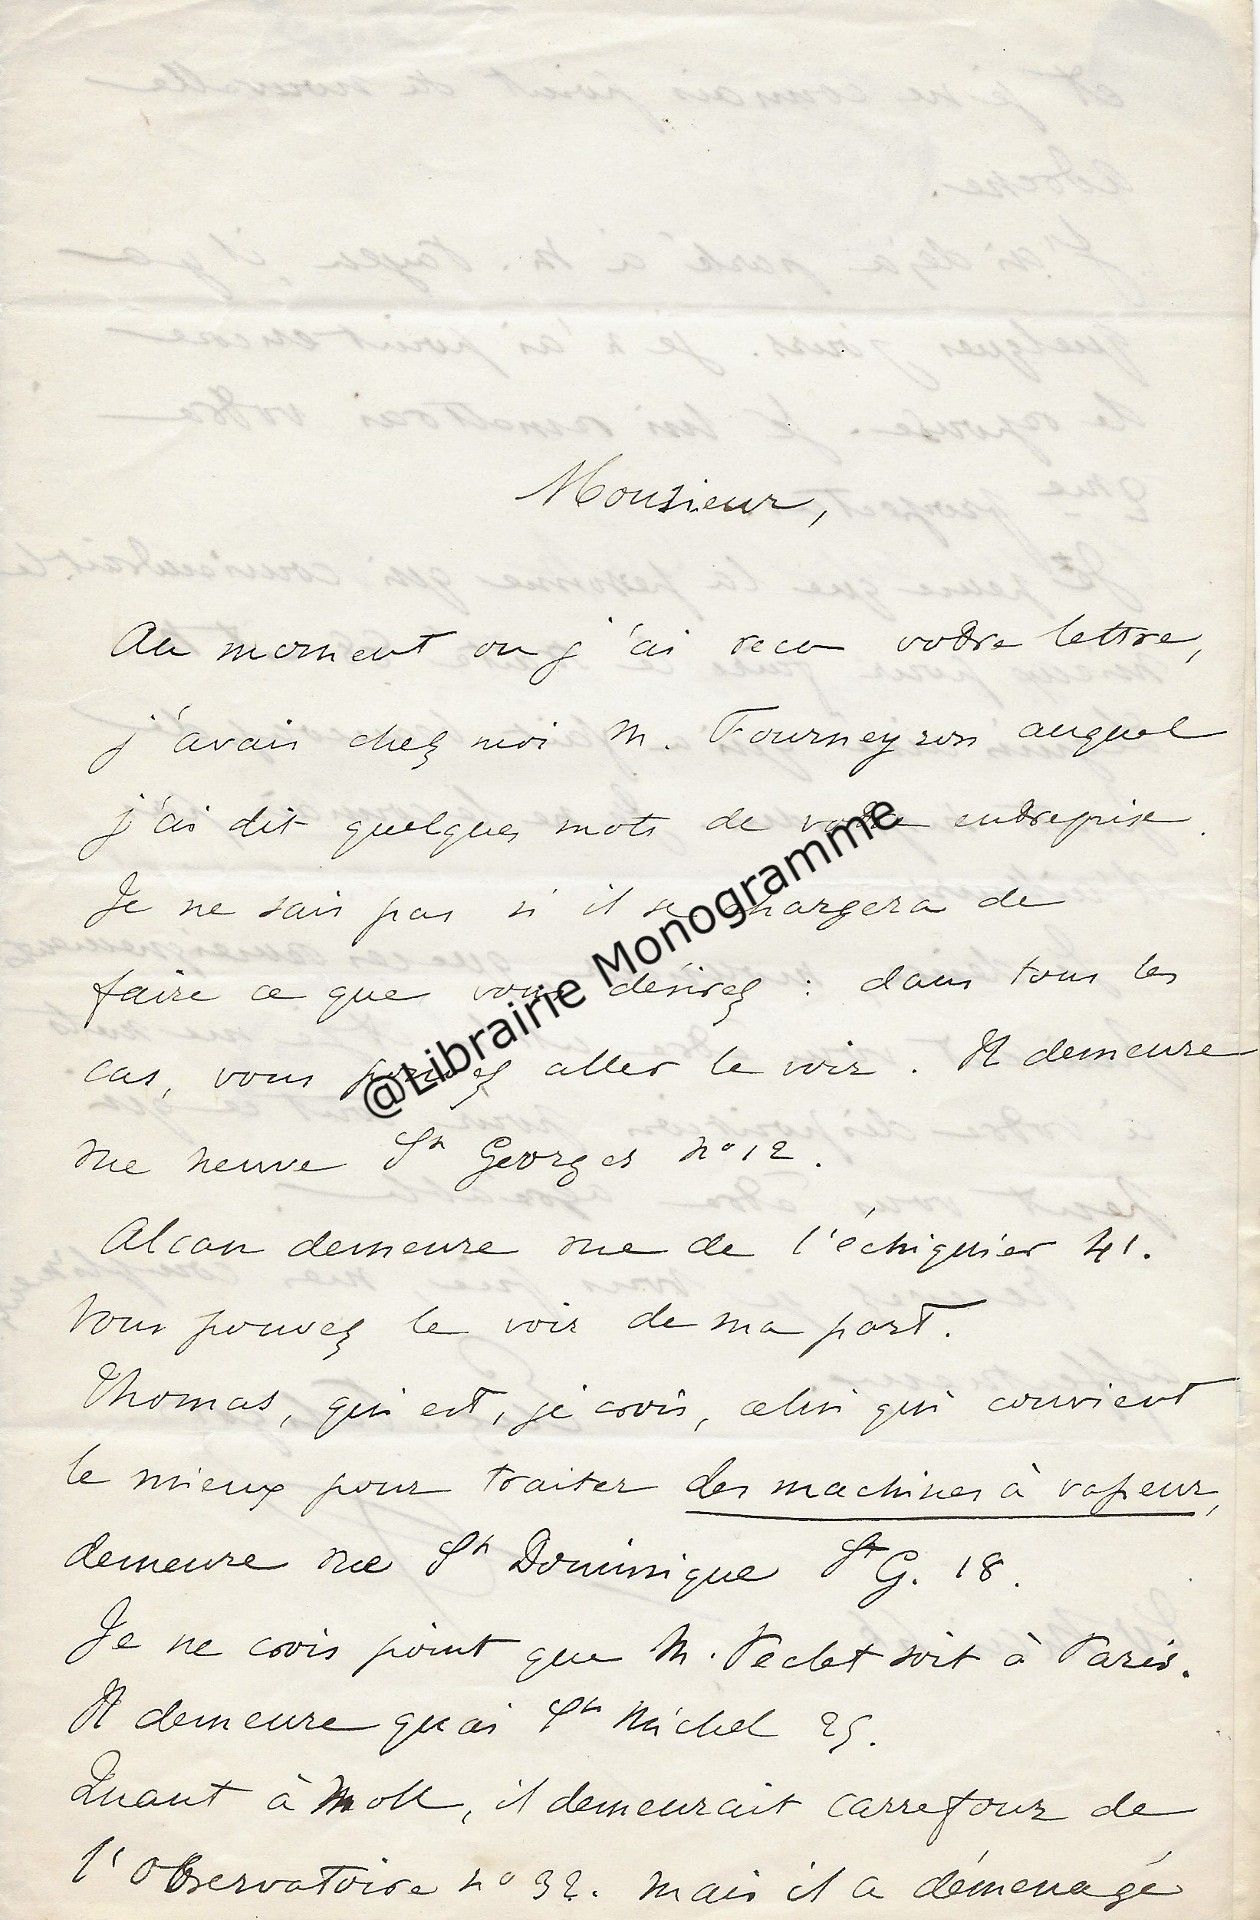 Monsieur,
Au moment ou j'ai recu votre lettre,
j'avais chez moi M. Fourneyron auquel
j'ai dit quelques mots de votre entreprise.
Je ne sais pas si il se chargera de
faire ce que vous désirez : dans tous les
cas, vous pouvez aller le voir. Il demeure
rue neuve St Georges no 12.
Alcan demeure rue de l'échiquier 41.
Vous pouvez le voir de ma part.
Thomas, qui est, je crois, celui qui convient
le mieux pour traiter des machines à vapeur,
demeure rue St Dominique St G. 18.
Je ne crois point que M. Peclet soit à Paris.
Il demeure quai St Michel 25.
Quant à Moll, il demeurait carrefour de
l'Observatoire no 32. Mais il a démenagé
@Librairie Monogramme